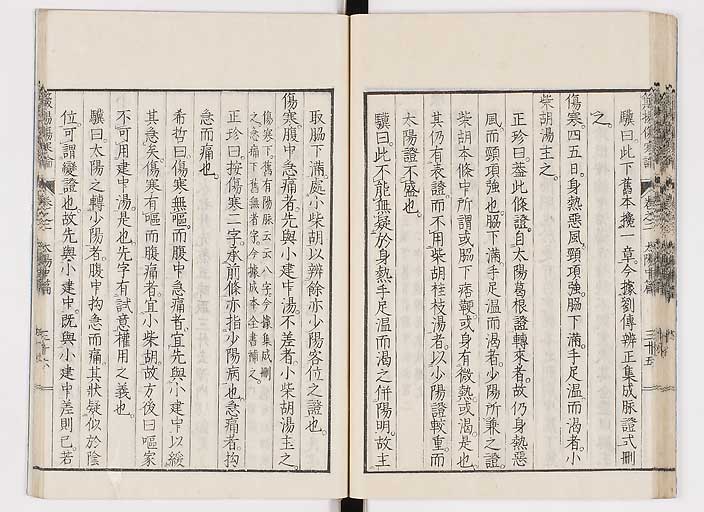 驥曰此下舊本攙一章今據劉傳辨正集成脈證式刪
之。
傷寒四五日。身熱惡風。頸項強。脇下滿。手足溫而渴者。小
柴胡湯主之。
正珍曰。蓋此條證。自太陽葛根證轉來者。故仍身熱惡
風而頸項強也。脇下滿手足溫而渴者。少陽所兼之證。
柴胡本條中所謂或脇下痞鞕或身有微熱。或渴是也
其仍有表證而不用柴胡桂枝湯者。以少陽證較重而
太陽證不盛也。
驥曰。此不能無疑於身熱手足溫而渴之併陽明。故主
取脇下滿。處小柴胡以辨餘亦少陽客位之證也。
傷寒腹中急痛者。先與小建中湯。不差者。小柴胡湯主之。
傷寒下。舊有陽脉云云八字今據集成刪
之急痛下舊無者字。今據成本全書補之。
正珍曰。按傷寒二字。承前條亦指少陽病也。急痛者。拘
急而痛也。
希哲曰傷寒無嘔。而腹中急痛者。宜先與小建中以緩
其急矣。傷寒有嘔而腹痛者。宜小柴胡故方後曰嘔家
不可用建中湯是也。先字有試意權用之義也。
驥曰。太陽之轉少陽者。腹中拘急而痛。其狀疑似於陰
位。可謂變證也。故先與小建中。既與小建中。差則已。若